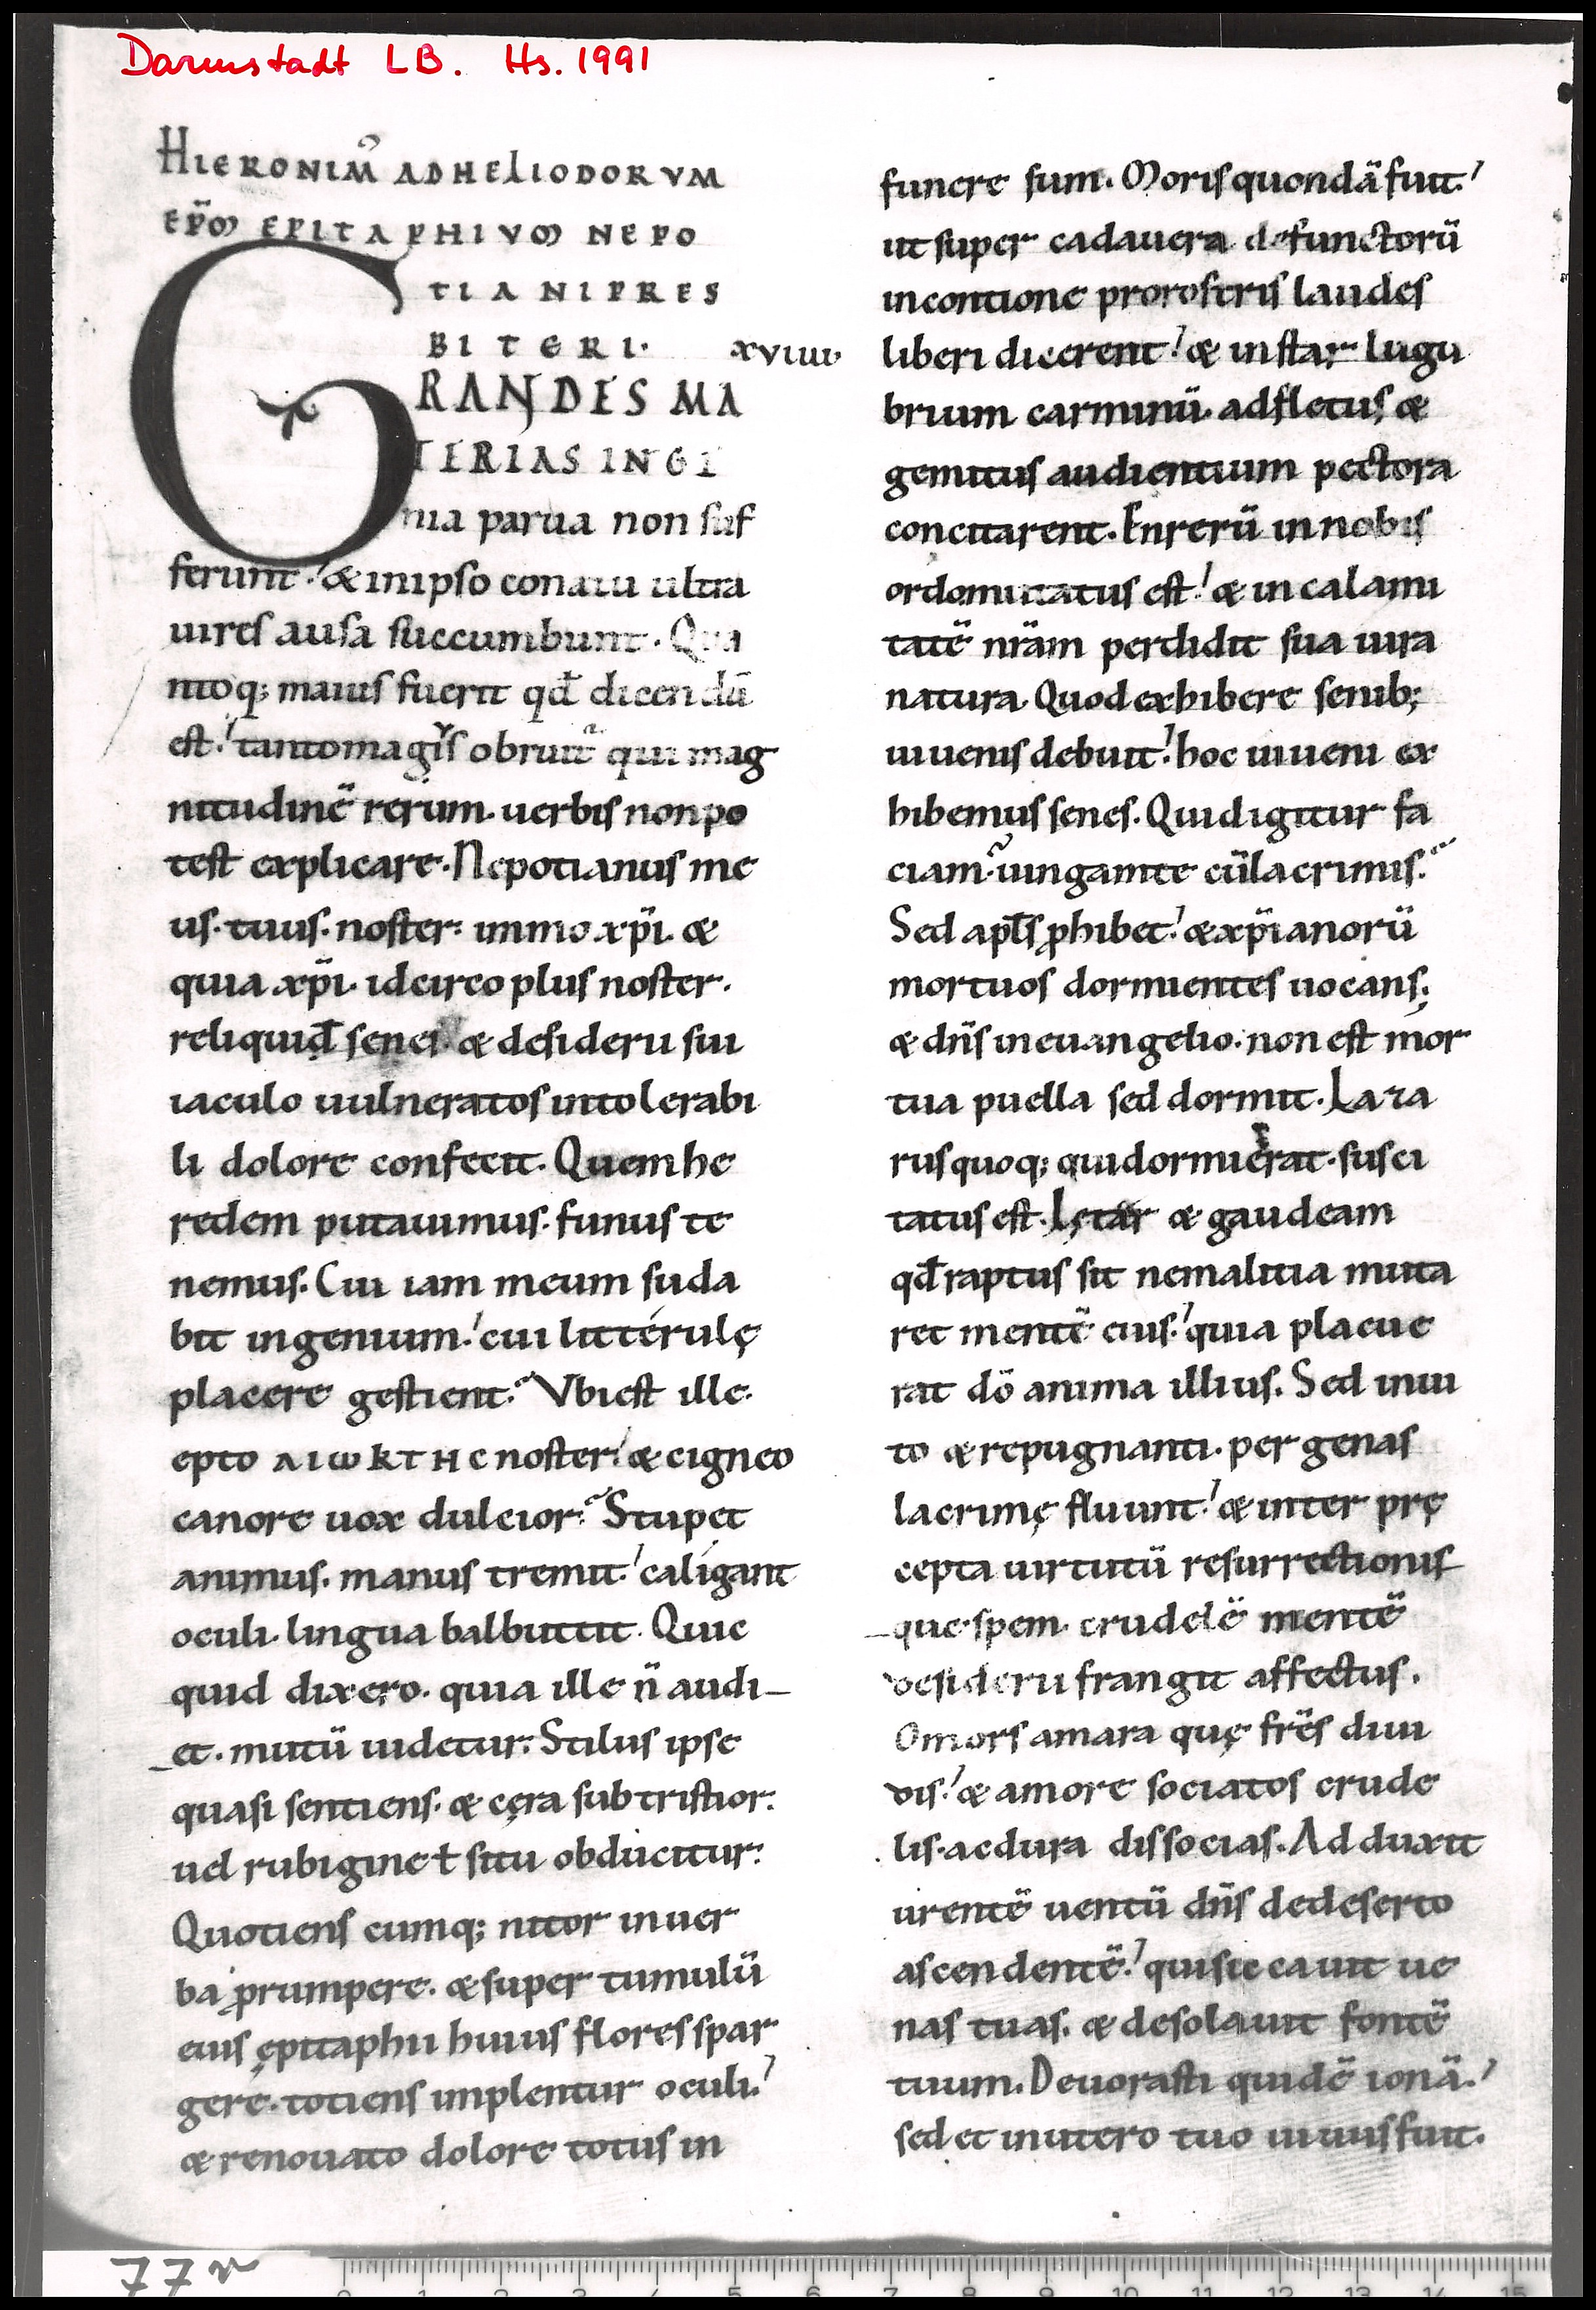 Darmstadt LB. Hs. 1991
HIERONIM᷒ AD HELIODORVM
EP̄M EPITAPHIVM NEPO
TIANI PRES
BITERI. XVIIII.
GRANDES MA
TERIAS INGE
nia parua non suf
ferunt. & in ipso conatu ultra
uires ausa succumbunt. Qua
ntoq; maius fuerit qd̄ dicendū
est. tanto magis obruit᷑ qui mag
nitudinē rerum. uerbis non po
test explicare. Nepotianus me
us. tuus. noster. immo xp̄i. &
quia xp̄i. idcirco plus noster.
reliquid senes & desiderii sui
iaculo uulneratos intolerabi
li dolore confecit. Quem he
redem putauimus. funus te
nemus. Cui iam meum suda
bit ingenium. cui litterulę
placere gestient. Vbi est ille
epto ΛΙωΚΤΗC noster. & cigneo
canore uox dulcior. Stupet
animus. manus tremit. caligant
oculi. lingua balbuttit. Quic
quid dixero. quia ille n̄ audi
et. mutū uidetur. Stilus ipse
quasi sentiens. & cęra subtristior.
uel rubigine ł situ obducitur.
Quotiens cumq; nitor in uer
ba ꝓrumpere. & super tumulū
eius epitaphii huius flores spar
gere. totiens implentur oculi.
& renouato dolore totus in
funere sum. Moris quondā fuit.
ut super cadauera defunctorū
in contione pro rostris laudes
liberi dicerent. & instar lugu
brium carminū. ad fletus &
gemitus audientium pectora
concitarent. En rerū in nobis
ordo mutatus est. & in calami
tatē nrām perdidit sua iura
natura. Quod exhibere senib;
iuuenis debuit. hoc iuueni ex
hibemus senes. Quid igitur fa
ciam. iungam te cū lacrimis.
Sed apl̄s ꝓhibet. & xp̄ianorū
mortuos dormientes uocans.
& dn̄s in euangelio. non est mor
tua puella sed dormit. Laza
rus quoq; qui dormierat. susci
tatus est. Lęter & gaudeam
qd̄ raptus sit ne malitia muta
ret mentē eius. quia placue
rat dō anima illius. Sed inui
to & repugnanti. per genas
lacrimę fluunt. & inter prę
cepta uirtutū resurrectionis
que spem. crudelē mentē
desiderii frangit affectus.
O mors amara quę frēs diui
dis. & amore sociatos crude
lis. ac dura dissocias. Adduxit
urentē uentū dn̄s de deserto
ascendentē. qui siccauit ue
nas tuas. & desolauit fontē
tuum. Deuorasti quidē ionā.
sed et in utero tuo uiuus fuit.
77r
0 1 2 3 4 5 6 7 8 9 10 11 12 13 14 15